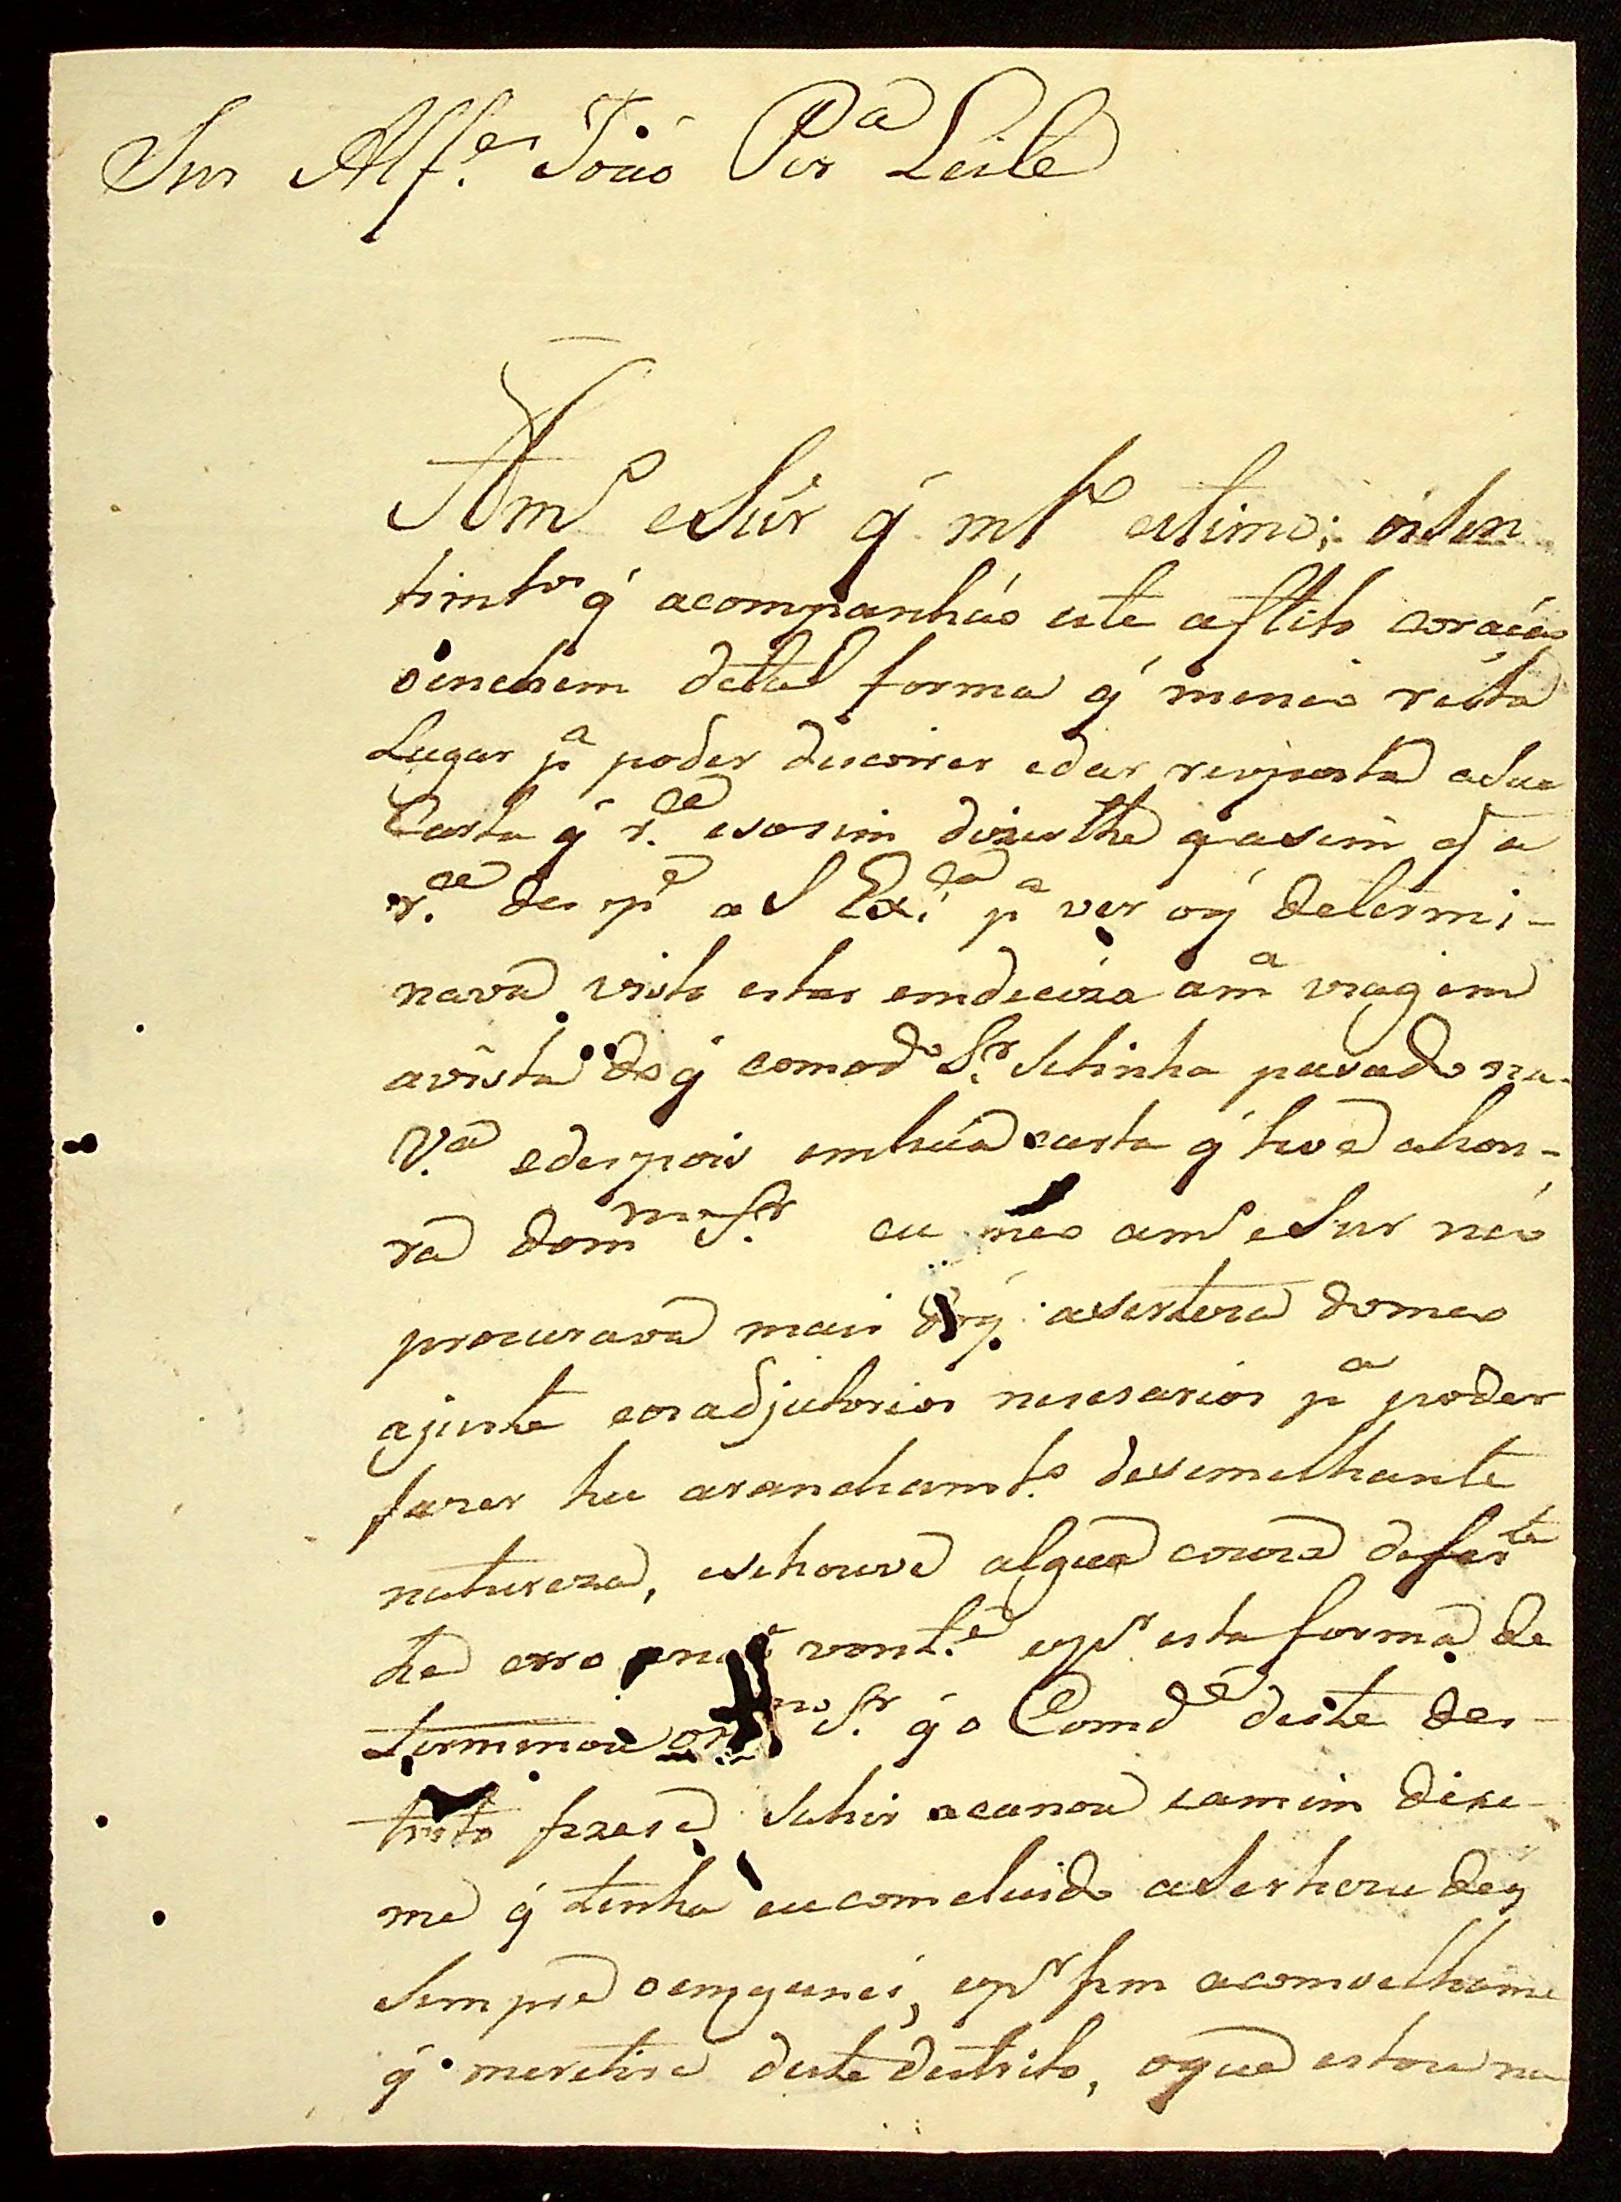 Snr Alf.es João Per.a Leite
Amo e Snr q' mto estimo; os Sen
timtos q' acompanhão este aflito coração
o enchem detal forma q' menão resta
Lugar pa poder discorrer edar resposta asua
Carta q' r.ce esosim dizerlhe q asim q a
r.ce des pe a S Ex.ca pa ver oq' determi-
nava visto estar emdeciza a ma viagem
avista do q' como d.o Sr. Setinha pasado na
V.a edespois emhũa carta q' tive ahon-
ra do m mo Sr. eu meo amo e Snr não
procurava mais doq' aserteza domeo
ajuste eos adjutorios nesesarios pa poder
fazer hu aranchamto. desemelhante
natureza, esehouve algũa couza desta
he erro vont.e epr esta forma de
terminou o mo Sr. q' o Comde deste des-
trito fizese Sehir acanoa eamim dise-
me q' tinha eu comcluido aSerhora deq
Sempre oemgunei, epr fim acomselhame
q' meretire deste destrito, oque estou na